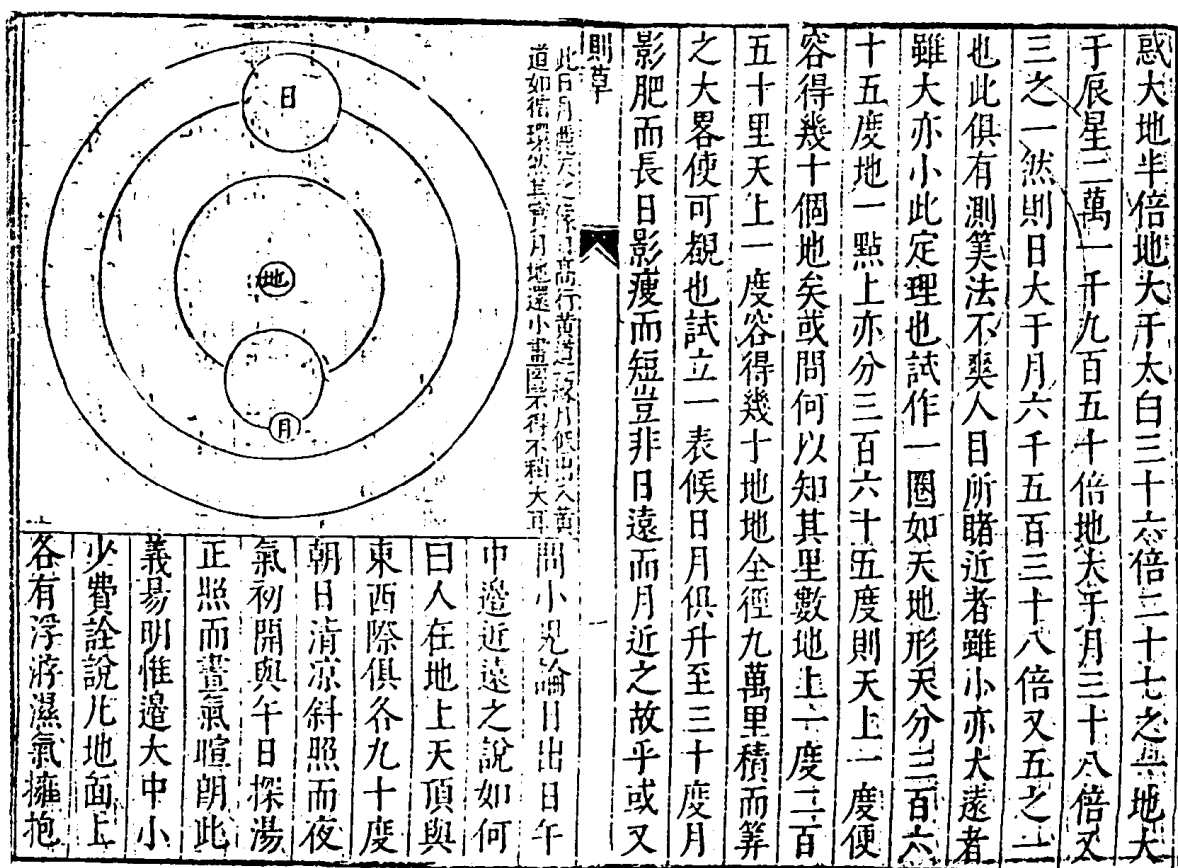 惑大地半倍地大于太白三十六倍二十七之一地大
于辰星二萬一千九百五十倍地大于月三十八倍又
三之一然則日大于月六千五百三十八倍又五之一
也此俱有測筭法不爽人目所睹近者雖小亦大遠者
雖大亦小此定理也試作一圈如天地形天分三百六
十五度地一點上亦分三百六十五度則天上一度便
容得幾十個地矣或問何以知其里數地上一度二百
五十里天上一度容得幾十地地全徑九萬里積而筭
之大畧使可覩也試立一表候日月俱升至三十度月
影肥而長日影瘦而短豈非日遠而月近之故乎或又
則草
一
此日月麗天之像日高行黃道之月低出入黃
道如循環然其實月地還小畫圖不得不稍大耳
日
地
月
問小兒論日出日午
中邉近遠之說如何
曰人在地上天頂與
東西際俱各九十度
朝日清凉斜照而夜
氣初開與午日探湯
正照而晝氣暄朗此
義易明惟邉大中小
少費詮說凡地面上
各有浮游濕氣擁抱